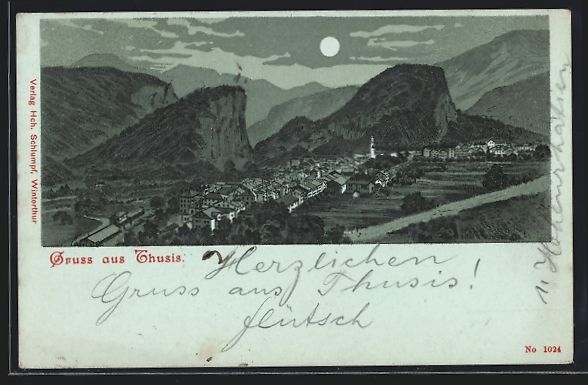 Verlag Hch. Schlumpf, Winterthur
Gruss aus Thusis.
Herzlichen
Gruss aus Thusis!
flütsch
1. Hohenrhätien
No 1024